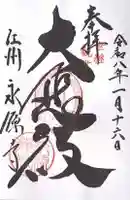 奉拝
令和八年一月十六日
大悲殿
江州 永源寺